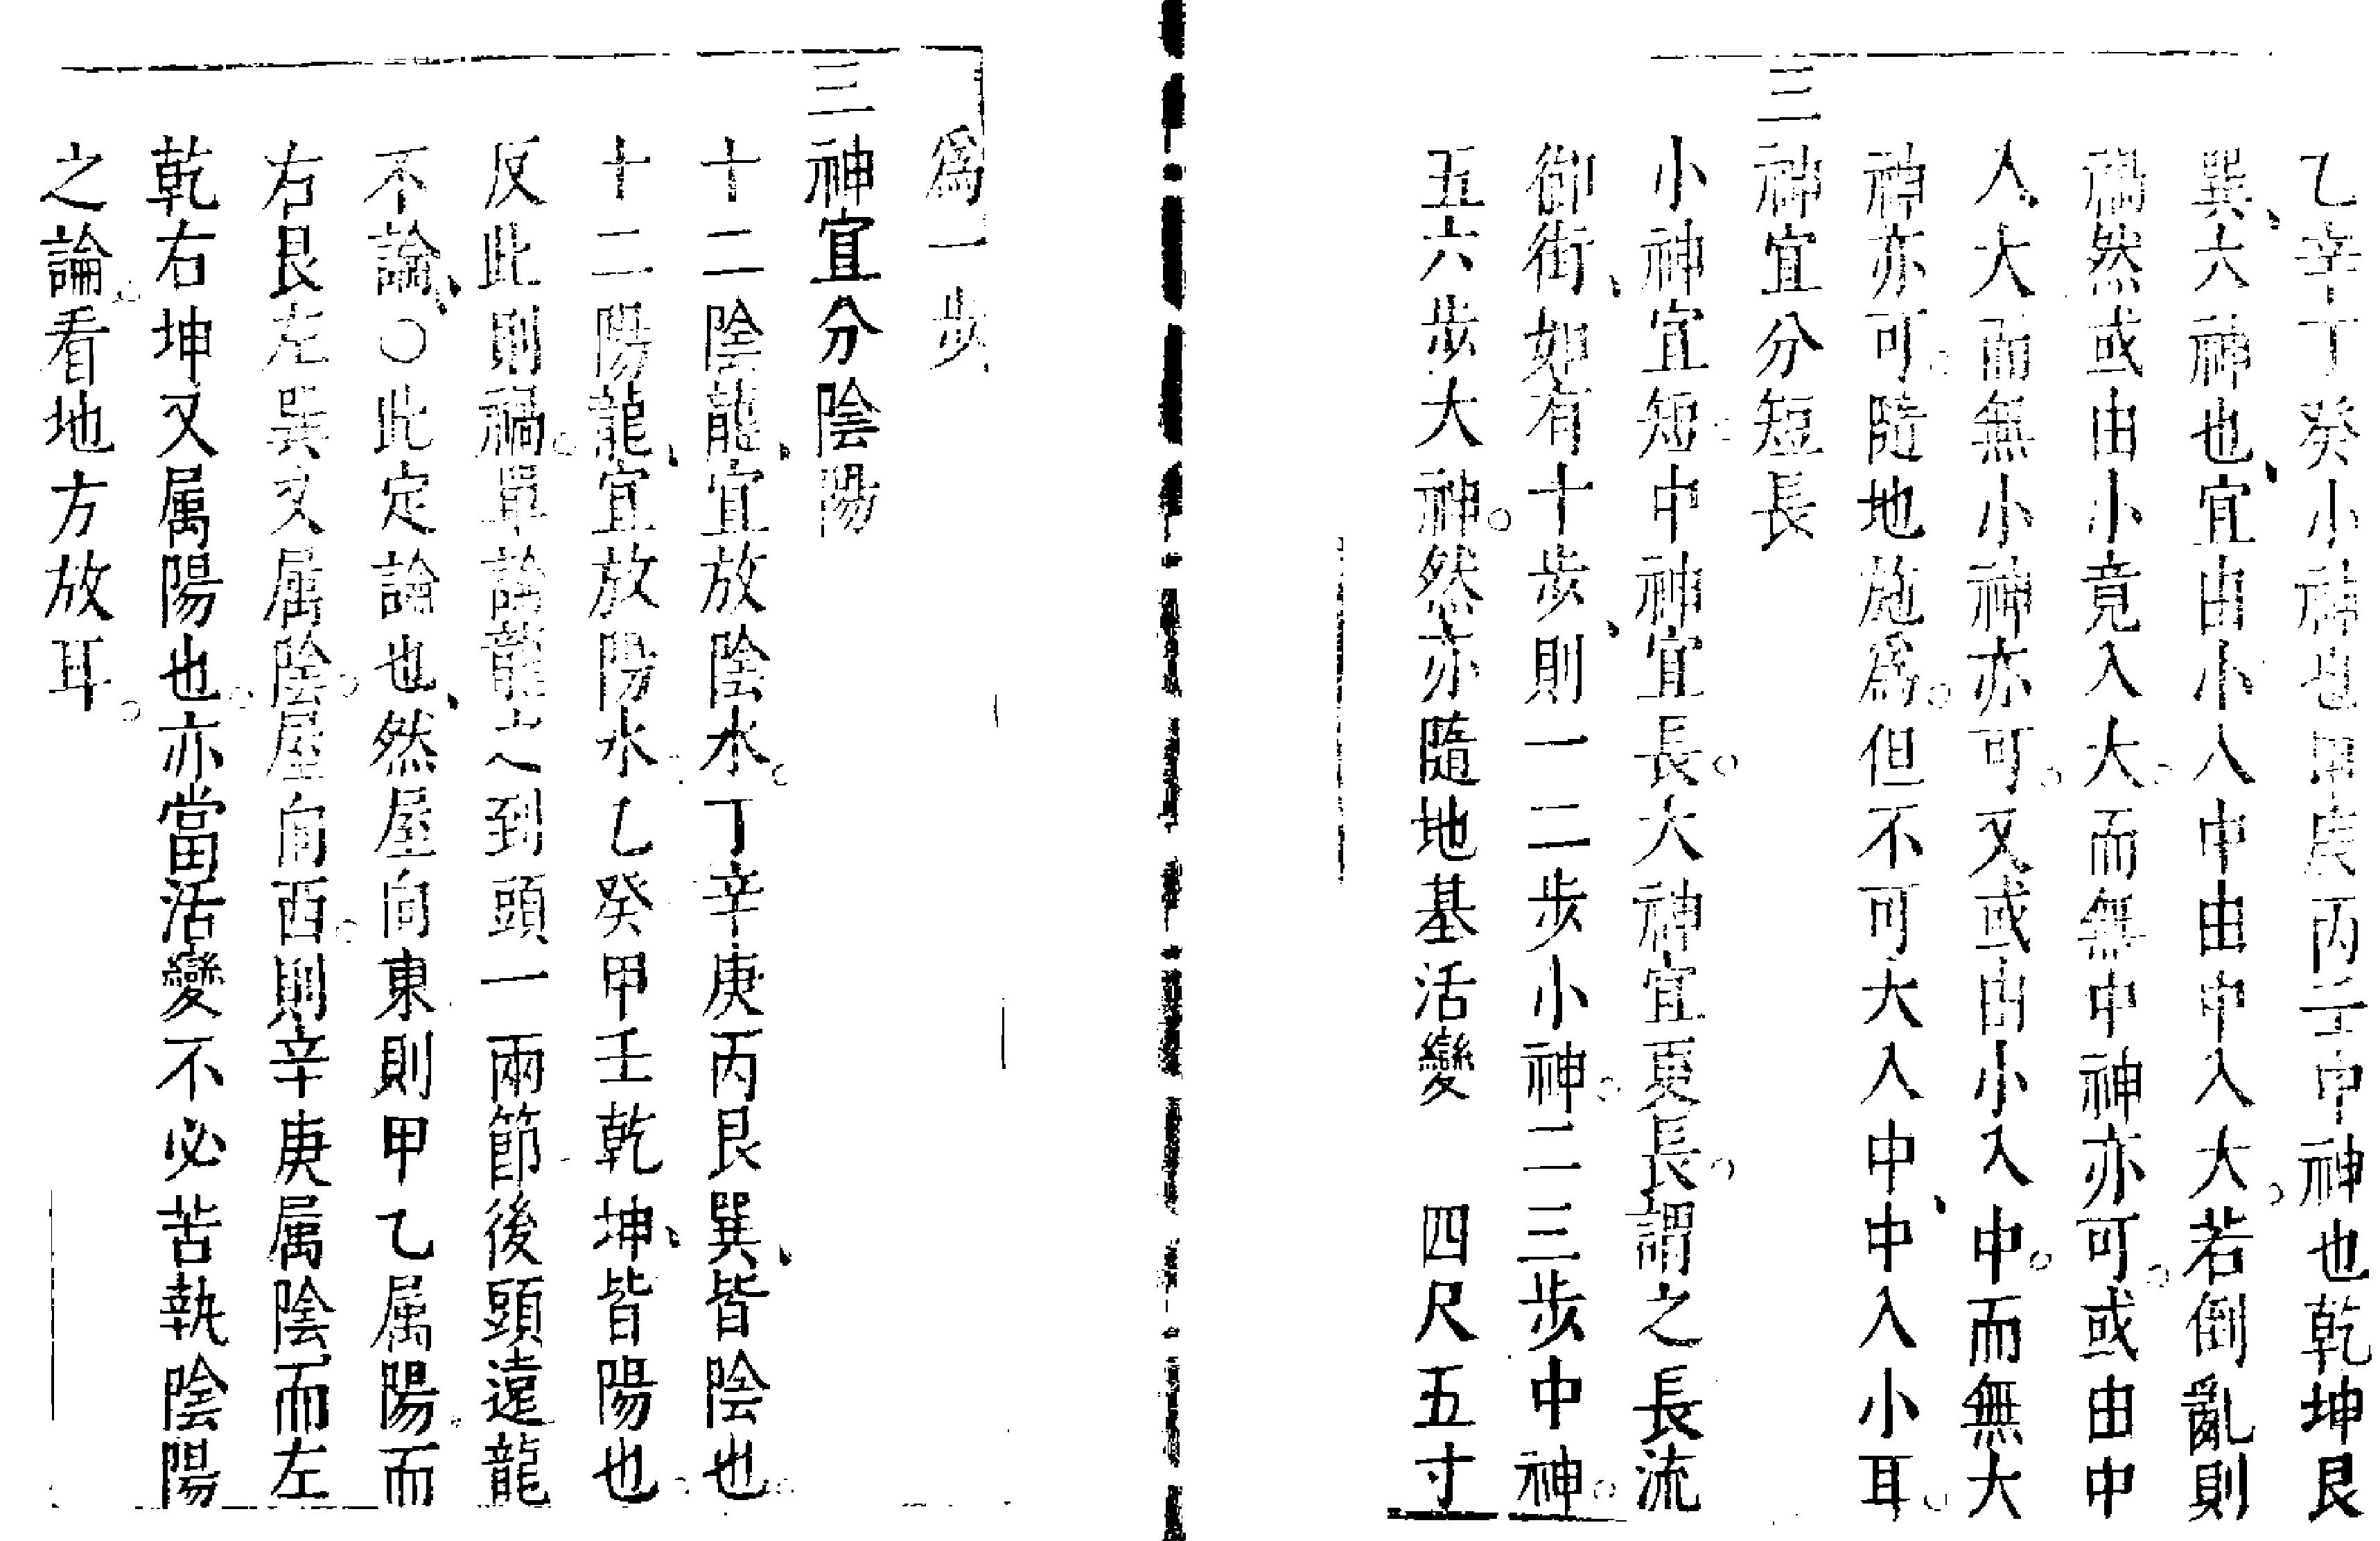 乙辛丁癸小神也甲庚丙壬中神也乾坤艮
巽、大神也、宜由小入中由中入大。若倒亂則
禍然或由小竟入大。而無中神亦可。或由中
入大而無小神亦可。又或由小入中。而無大
神亦可。隨地施為。但不可大入中、中入小耳。
三神宜分短長
小神宜短。中神宜長。大神宜更長。謂之長流
御街、如有十步、則一二步小神。二三步中神。
五六步大神。然亦隨地基活變 四尺五寸
為一步
三神宜分陰陽
十二陰龍、宜放陰水。丁辛庚丙艮巽、皆陰也。
十二陽龍、宜放陽水。乙癸甲壬乾坤、皆陽也。
反此則禍。單論龍之到頭一兩節後頭遠龍
不論、○此定論也、然屋向東則甲乙属陽。而
右艮左巽又属陰。屋向西。則辛庚属陰而左
乾右坤又属陽也。亦當活變不必苦執陰陽
之論。看地方放耳。